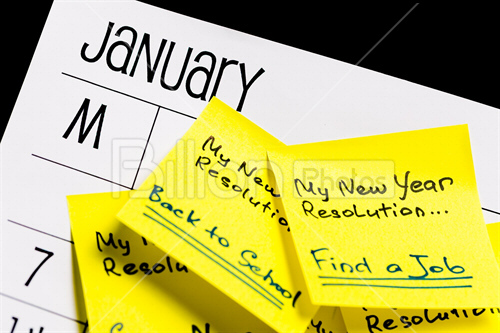 January
M
My New
Resolution
Back to School
My New Year
Resolution...
Find a Job
My
Resolution
7
Billion Photos